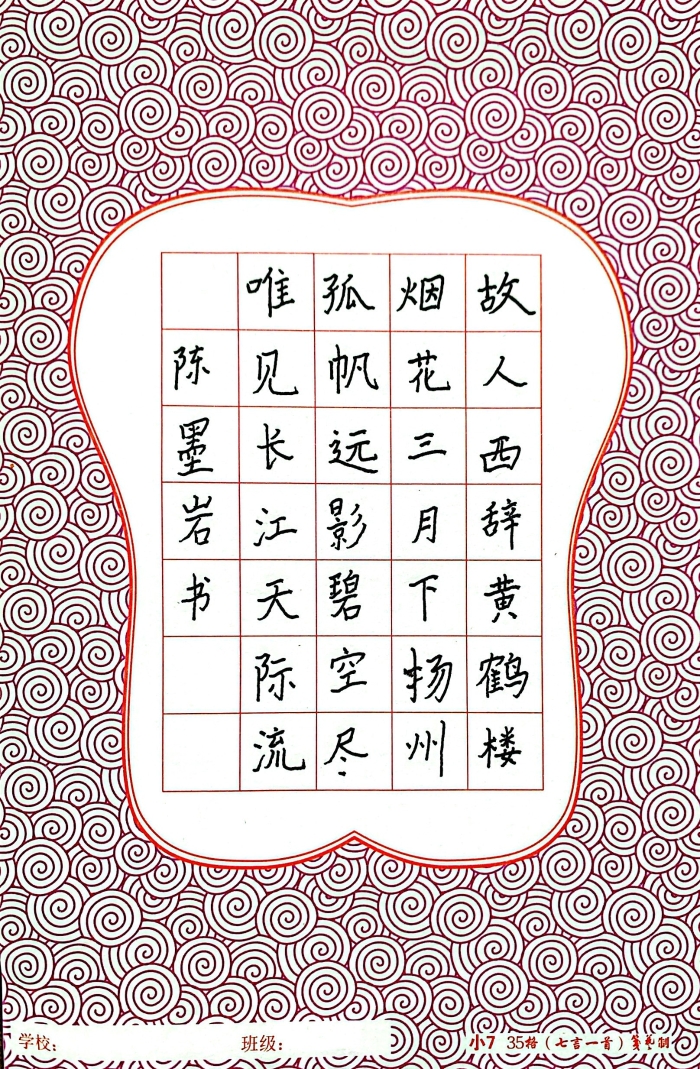 故人西辞黄鹤楼
烟花三月下扬州
孤帆远影碧空尽
唯见长江天际流
陈墨岩书
学校：
班级：
小7 35格（七言一首）笺艺制